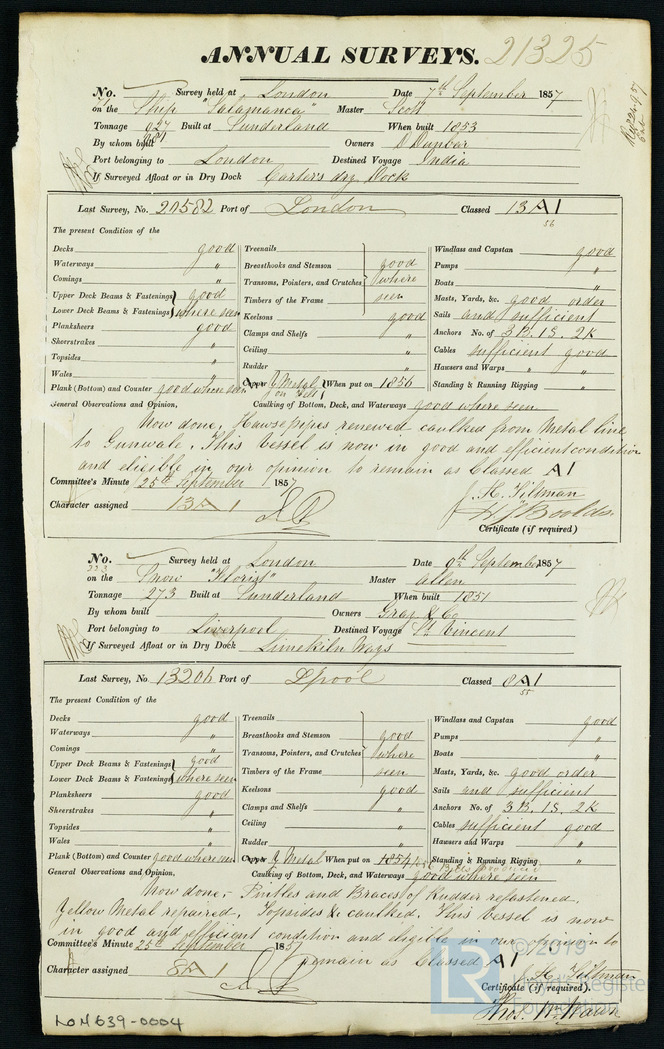 ANNUAL SURVEYS. 21325
No. Survey held at London Date 7th September 1857
on the Ship "Salamanca" Master Scott
Tonnage 927 Built at Sunderland When built 1853
By whom built Owners D Dunbar
Port belonging to London Destined Voyage India
If Surveyed Afloat or in Dry Dock Carter's dry Dock
Last Survey, No. 20582 Port of London Classed 13 A1
56
The present Condition of the
Decks good
Waterways "
Comings "
Upper Deck Beams & Fastenings } good
Lower Deck Beams & Fastenings } where seen
Planksheers good
Sheerstrakes "
Topsides "
Wales "
Plank (Bottom) and Counter good where seen
Treenails
Breasthooks and Stemson good
Transoms, Pointers, and Crutches where
Timbers of the Frame seen
Keelsons good
Clamps and Shelfs "
Ceiling "
Rudder "
Copper Y Metal on Felt When put on 1856
Windlass and Capstan good
Pumps "
Boats "
Masts, Yards, &c. good order
Sails and sufficient
Anchors No. of 3B. 1S. 2K
Cables sufficient good
Hawsers and Warps " "
Standing & Running Rigging "
General Observations and Opinion, Caulking of Bottom, Deck, and Waterways good where seen
Now done, Hawsepipes renewed caulked from Metal line
to Gunwale. This Vessel is now in good and efficient condition
and eligible in our opinion to remain as Classed A1
Committee's Minute 25th September 1857
J. H. Tiltman
Character assigned 13 A 1
Certificate (if required)
No. Survey held at London Date 9th September 1857
on the Snow "Florist" Master Allen
Tonnage 273 Built at Sunderland When built 1851
By whom built Owners Gray & Co
Port belonging to Liverpool Destined Voyage St Vincent
If Surveyed Afloat or in Dry Dock Limekiln Ways
Last Survey, No. 13206 Port of Lpool Classed 8 A1
55
The present Condition of the
Decks good
Waterways "
Comings "
Upper Deck Beams & Fastenings } good
Lower Deck Beams & Fastenings } where seen
Planksheers good
Sheerstrakes "
Topsides "
Wales "
Plank (Bottom) and Counter good where seen
Treenails
Breasthooks and Stemson good
Transoms, Pointers, and Crutches where
Timbers of the Frame seen
Keelsons good
Clamps and Shelfs "
Ceiling "
Rudder "
Copper Y Metal When put on 1854
Windlass and Capstan good
Pumps "
Boats "
Masts, Yards, &c. good order
Sails and sufficient
Anchors No. of 3B. 1S. 2K
Cables sufficient good
Hawsers and Warps "
Standing & Running Rigging "
General Observations and Opinion. Caulking of Bottom, Deck, and Waterways good where seen
Now done, - Pintles and Braces of Rudder refastened.
Yellow Metal repaired. Topsides &c caulked. This Vessel is now
in good and efficient condition and eligible in our opinion to
Committee's Minute 25th September 1857
remain as Classed A1
Character assigned 8 A 1
J. H. Tiltman
Certificate (if required).
LON639-0004
LR © 2019
Lloyd's Register
Foundation